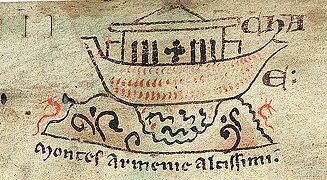 cha
E:
montes armenie altissimi: